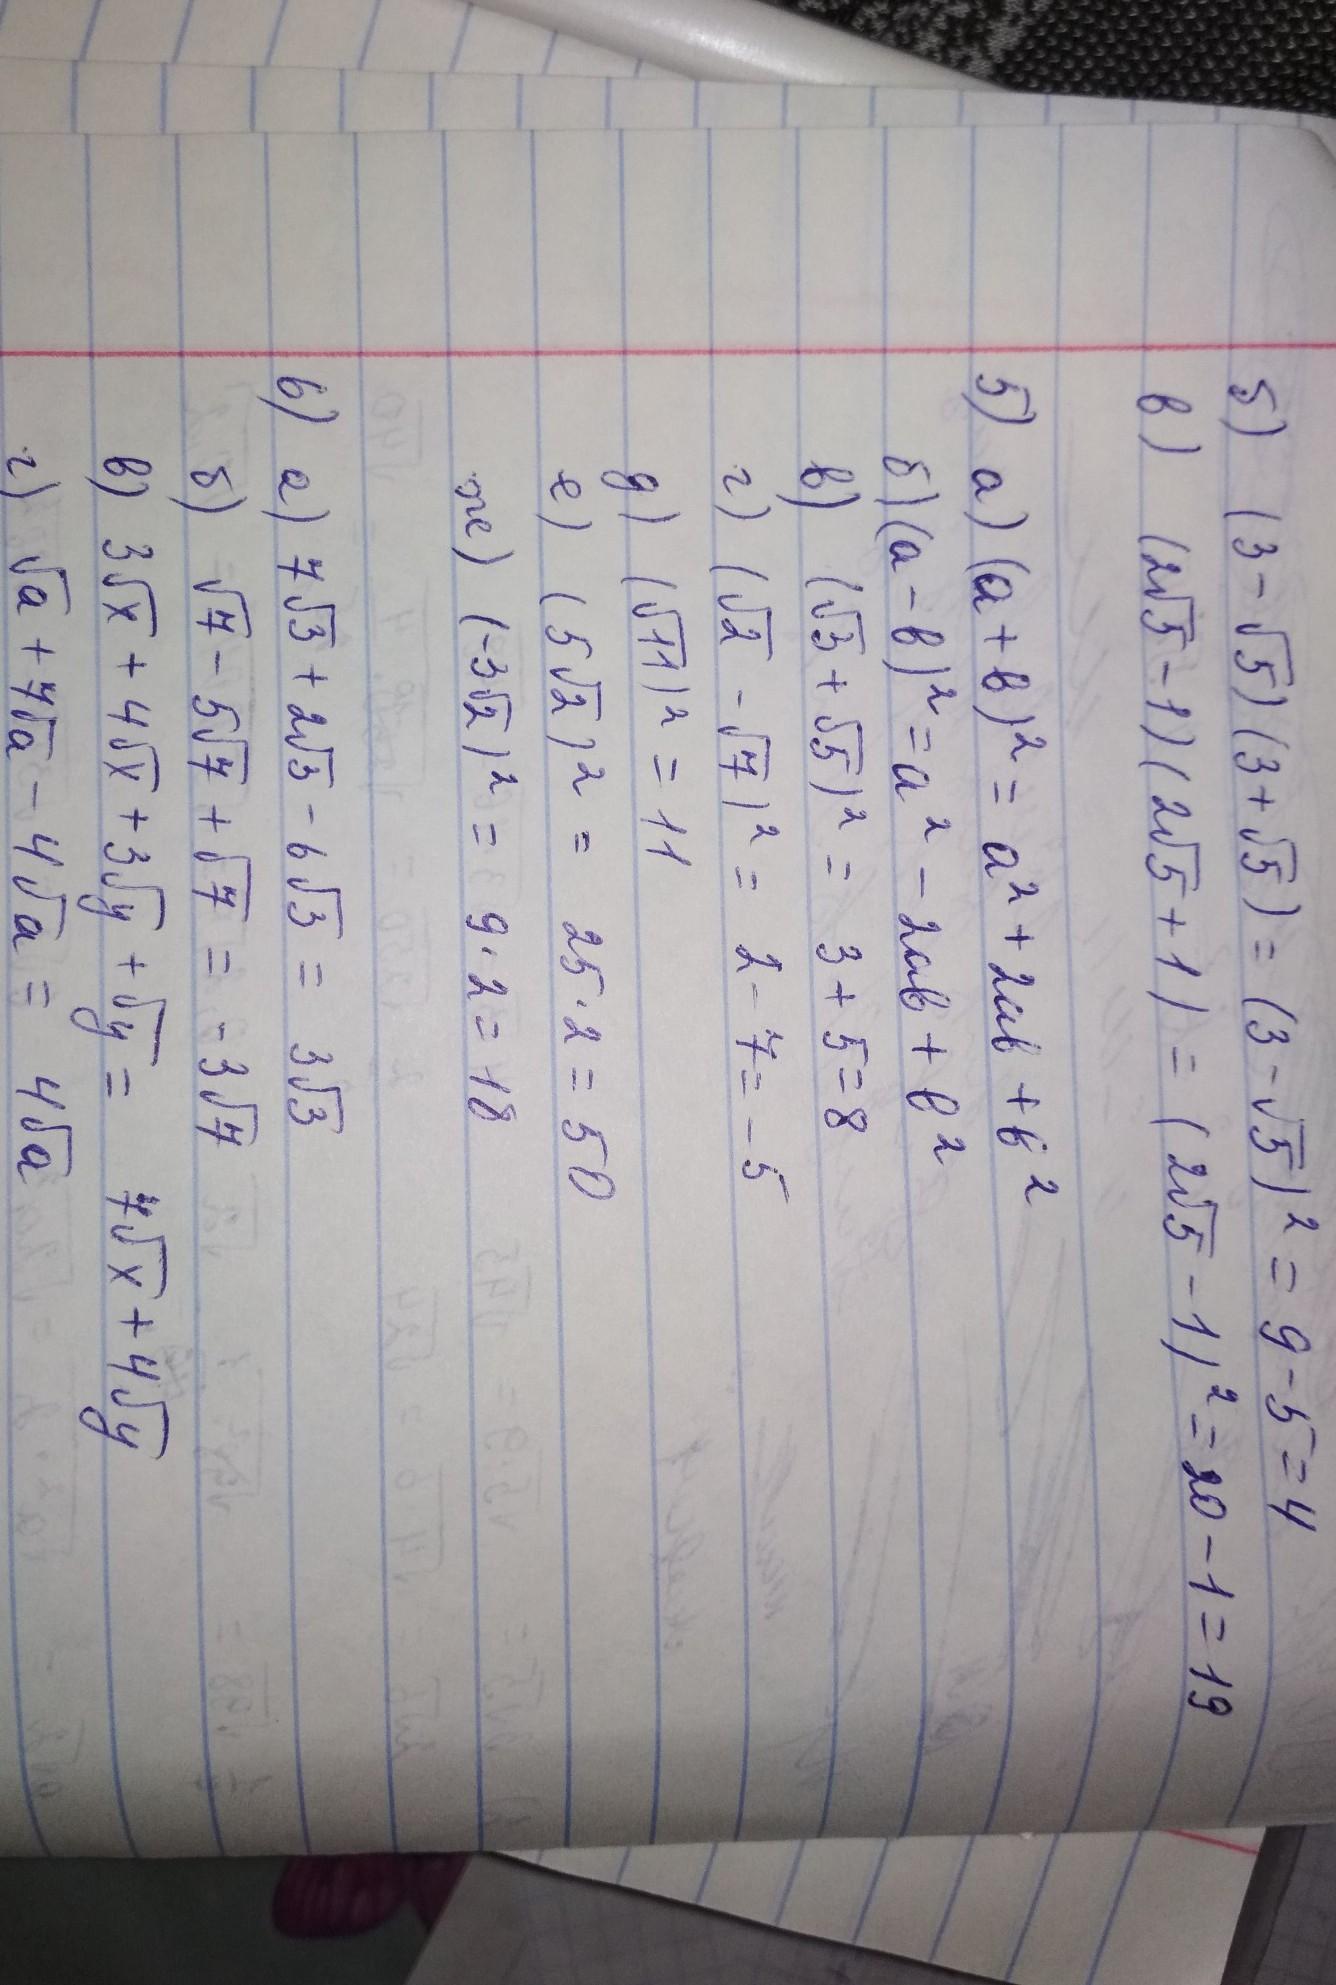 б) (3-√5)(3+√5) = (3-√5)² = 9-5=4
в) (2√5-1)(2√5+1) = (2√5-1)² = 20-1=19
5) а) (a+b)² = a²+2ab+b²
б) (a-b)² = a²-2ab+b²
в) (√3+√5)² = 3+5=8
г) (√2-√7)² = 2-7=-5
д) (√11)² = 11
е) (5√2)² = 25·2=50
ж) (-3√2)² = 9·2=18
6) а) 7√3+2√3-6√3 = 3√3
б) √7-5√7+√7 = -3√7
в) 3√x+4√x+3√y+√y = 7√x+4√y
г) √a+7√a-4√a = 4√a